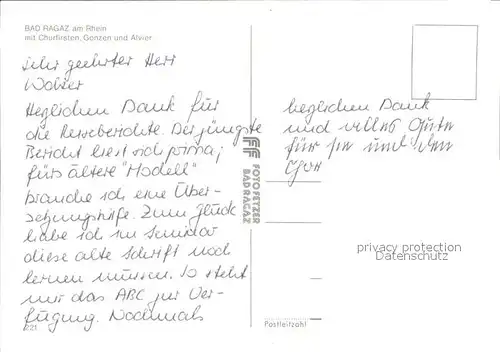 BAD RAGAZ am Rhein
mit Churfirsten, Gonzen und Alvier
Sehr geehrter Herr
Wolser
Herzlichen Dank für
die Reiseberichte. Der jüngste
Bericht liest sich prima;
fürs ältere "Modell"
brauche ich eine Über-
setzungshilfe. Zum Glück
habe ich im Seminar
diese alte Schrift noch
lernen müssen. So steht
mir das ABC zur Ver-
fügung. Nochmals
221
FF
FOTO FETZER
BAD RAGAZ
herzlichen Dank
und alles Gute
für Sie und den
Chor
privacy protection
Datenschutz
Postleitzahl